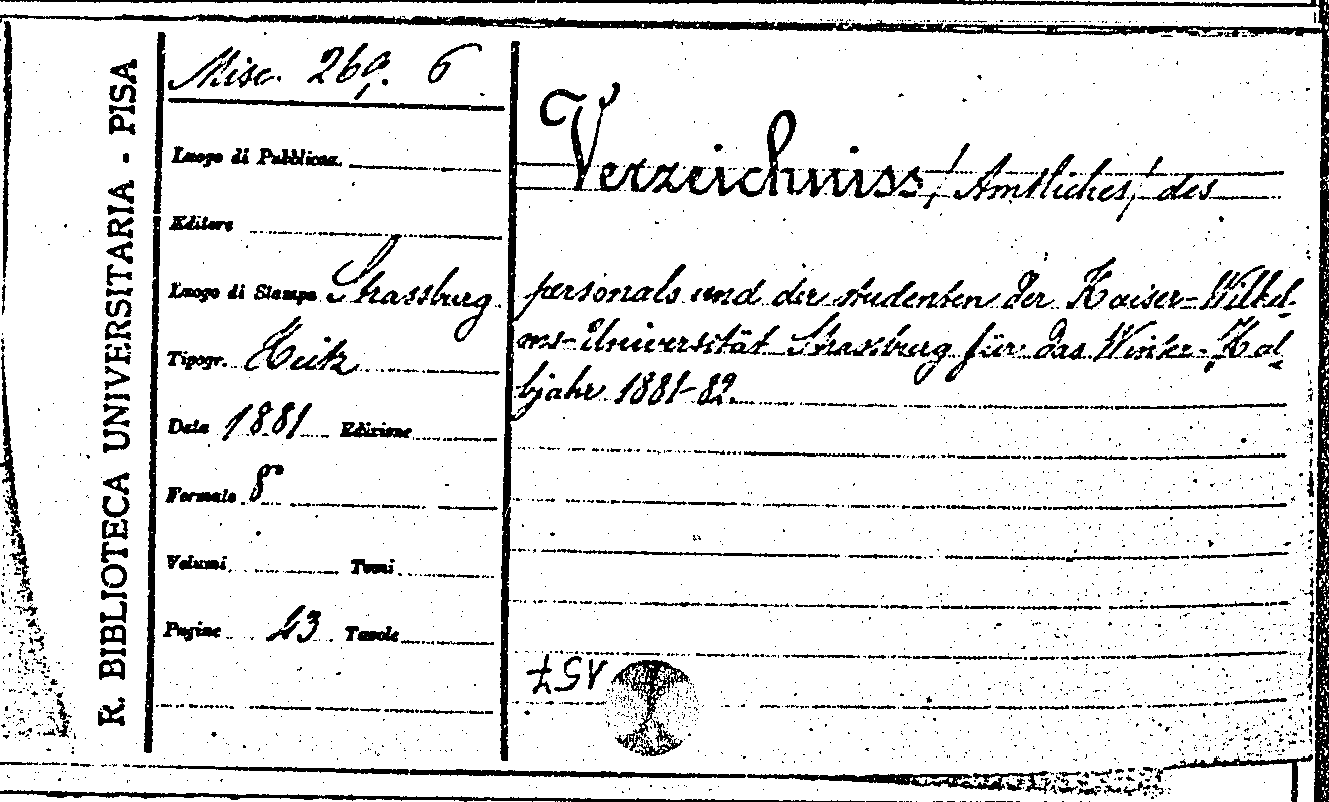 R. BIBLIOTECA UNIVERSITARIA - PISA
Misc. 269. 6
Luogo di Pubblicaz.
Editore
Luogo di Stampa Strassburg
Tipogr. Heitz
Data 1881 Edizione
Formato 8°
Volumi Tomi
Pagine 43 Tavole
Verzeichniss, / Amtliches, / des
personals und der studenten der Kaiser-Wilhel-
ms-Universität Strassburg für das Winter-Hal
bjahr 1881-82.
157